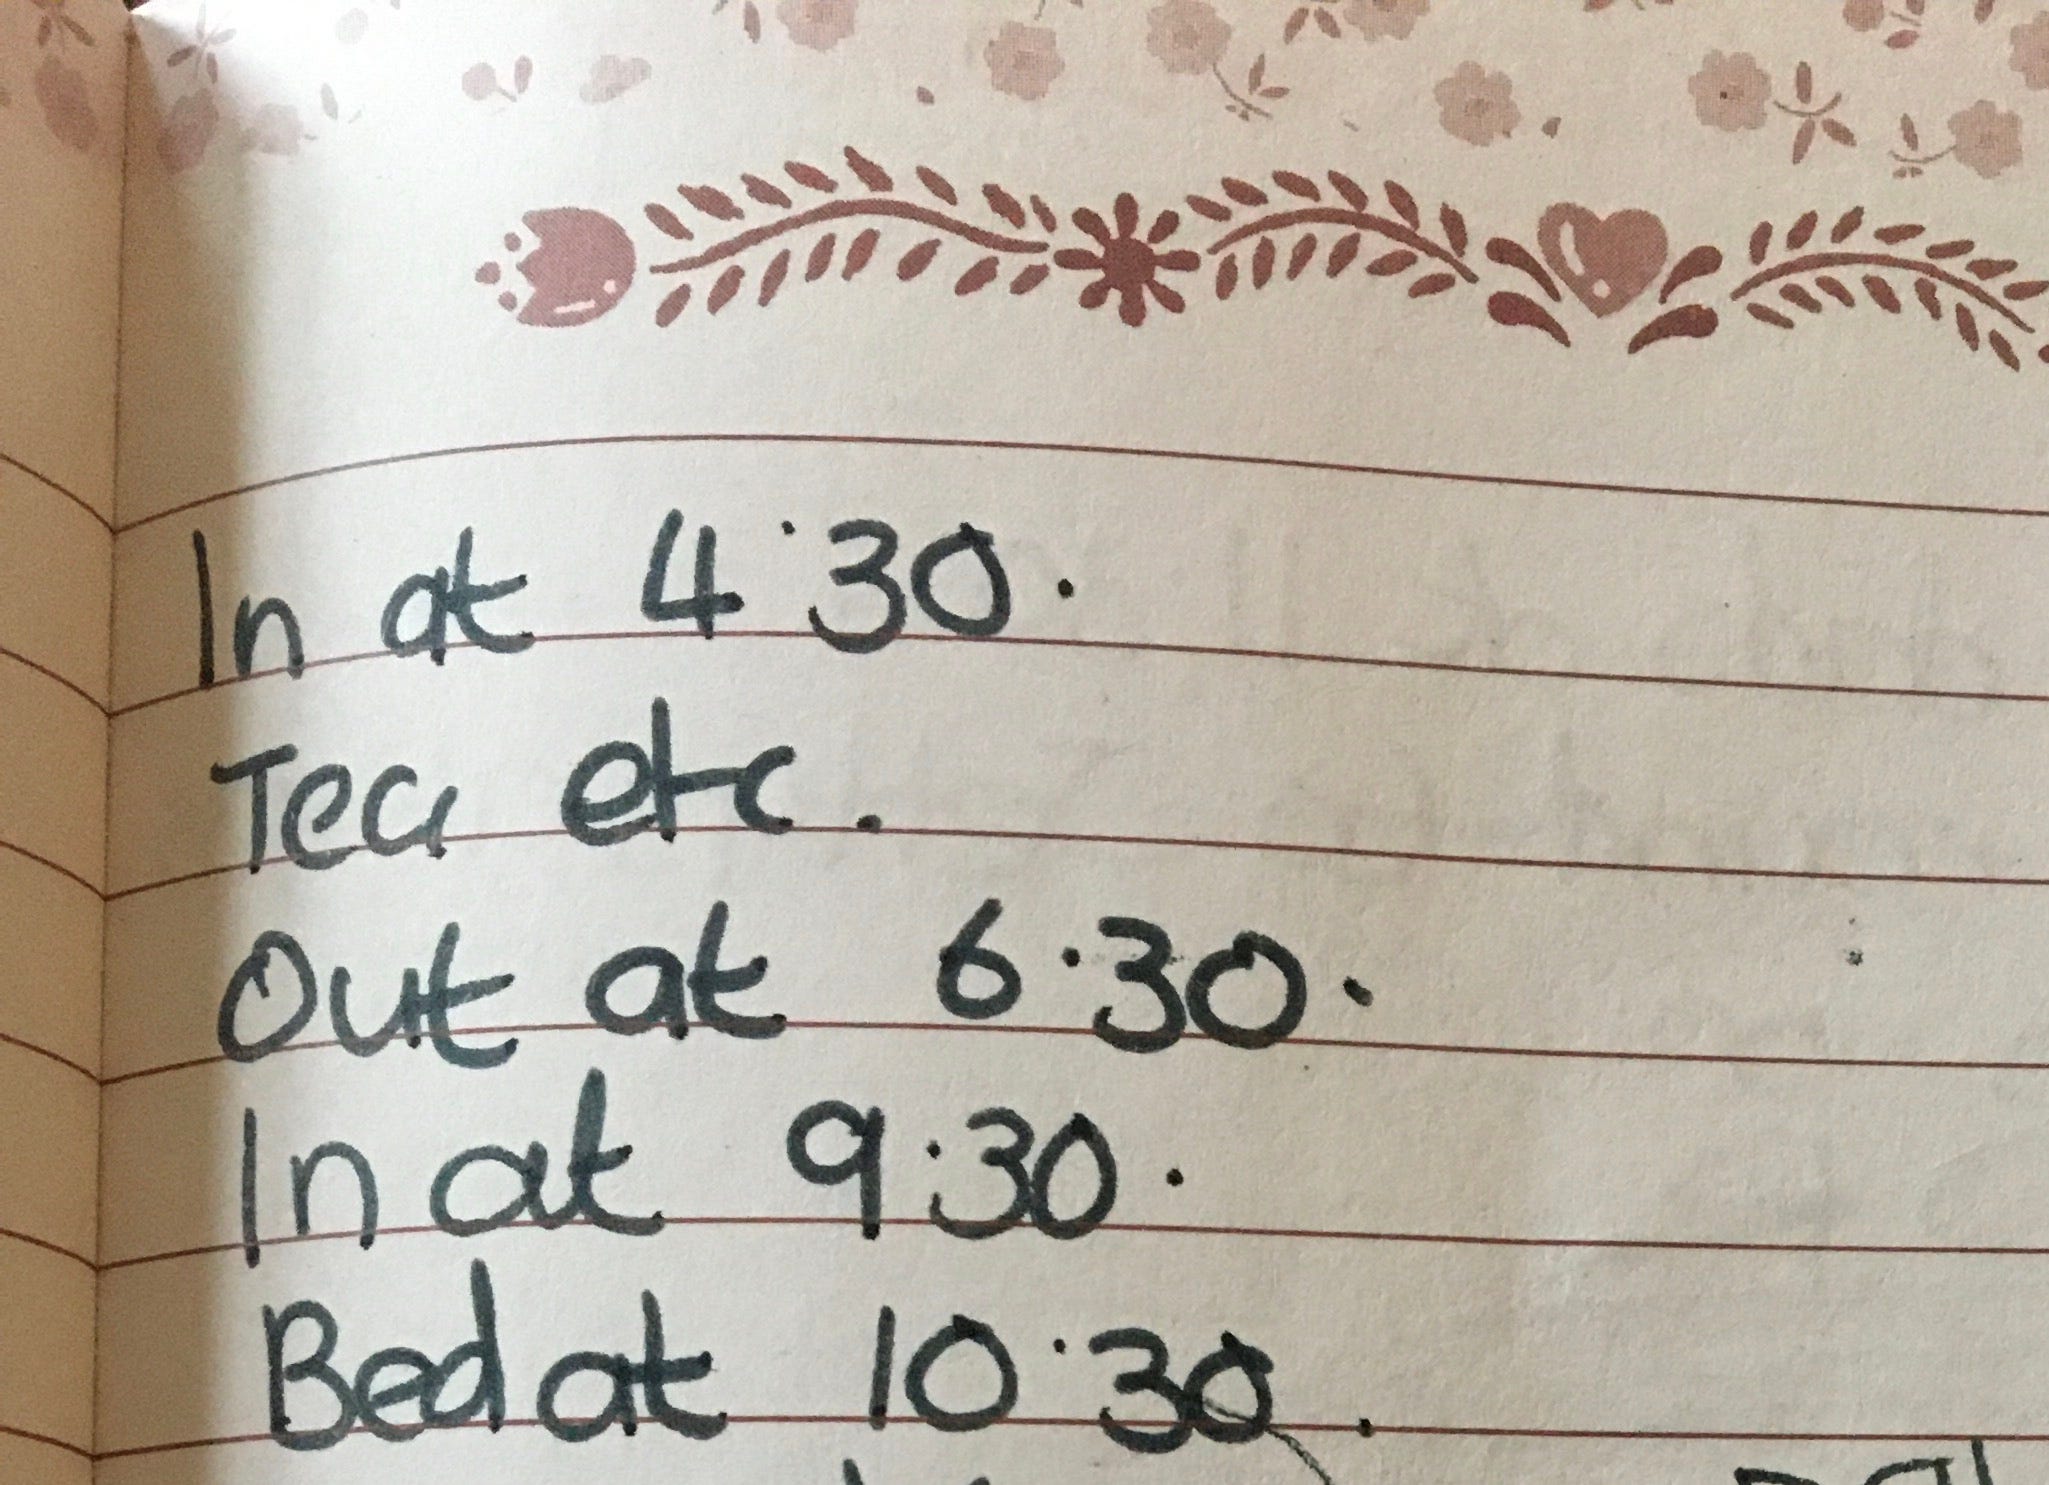 In at 4·30.
Tea etc.
Out at 6·30.
In at 9·30.
Bed at 10·30.